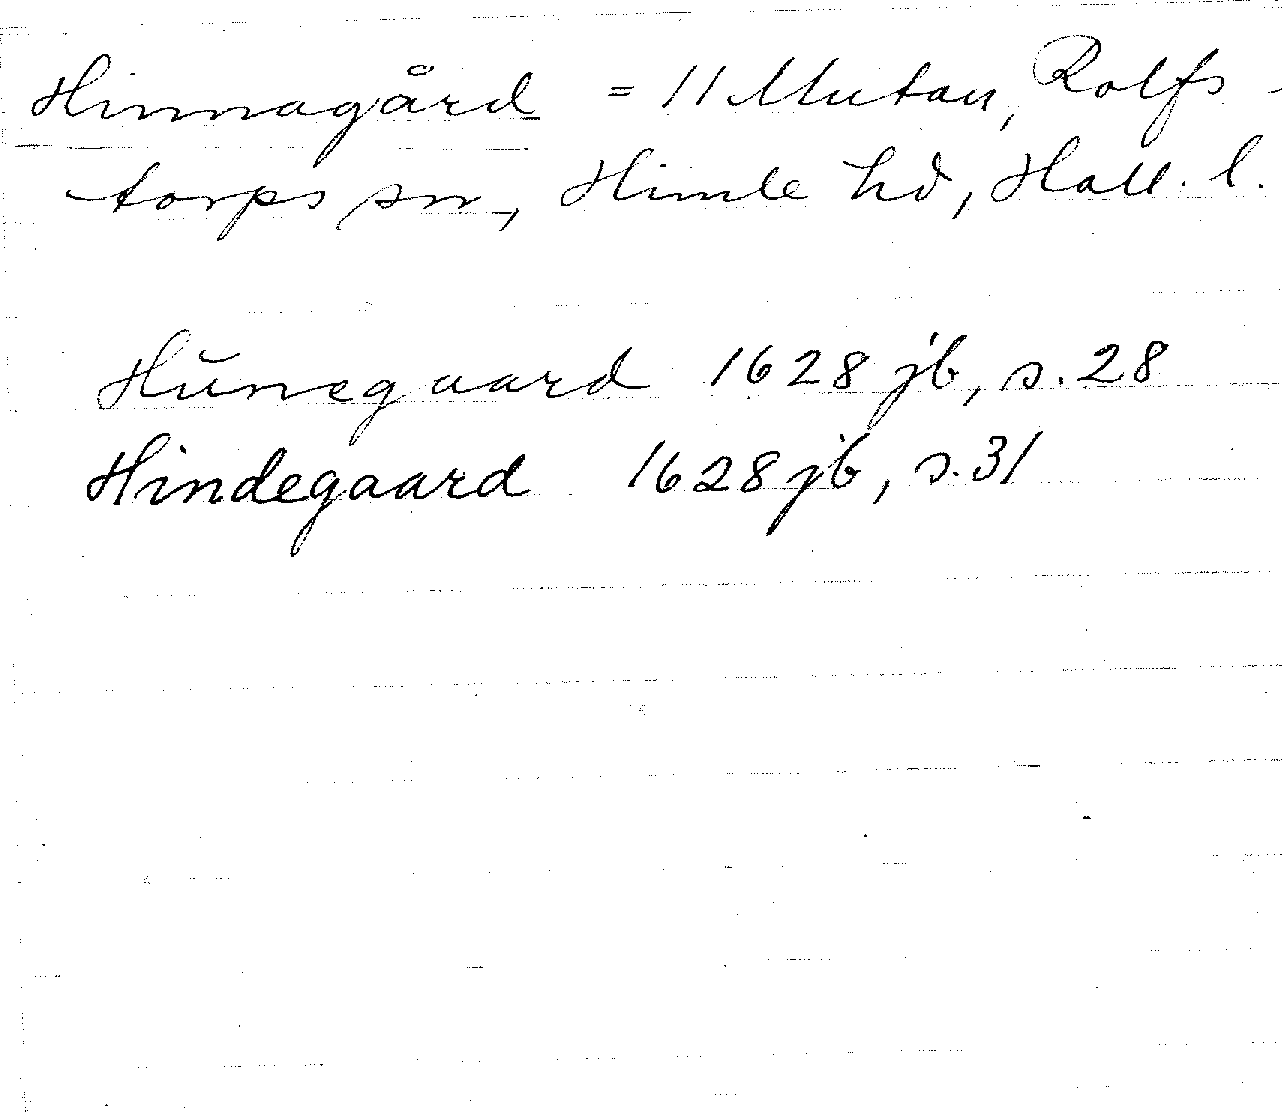 Hinnagård = 11 Mutan, Rolfs-
torps sn, Himle hd, Hall. l.
Hŭnegaard 1628 jb, s. 28
Hindegaard 1628 jb, s. 31